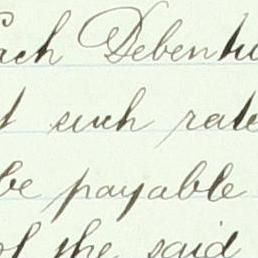 each Debentu
t such rate
be payable
of the said